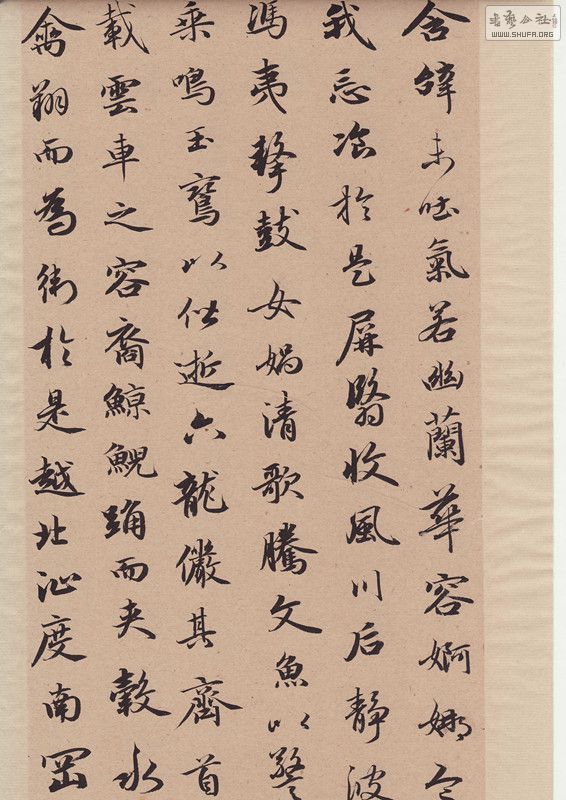 含辭未吐氣若幽蘭華容婀娜令
我忘飡於是屏翳收風川后靜波
馮夷擊鼓女媧清歌騰文魚以警
乘鳴玉鸞以偕逝六龍儼其齊首
載雲車之容裔鯨鯢踊而夾轂水
禽翔而為衛於是越北沚度南岡
書藝公社
WWW.SHUFA.ORG